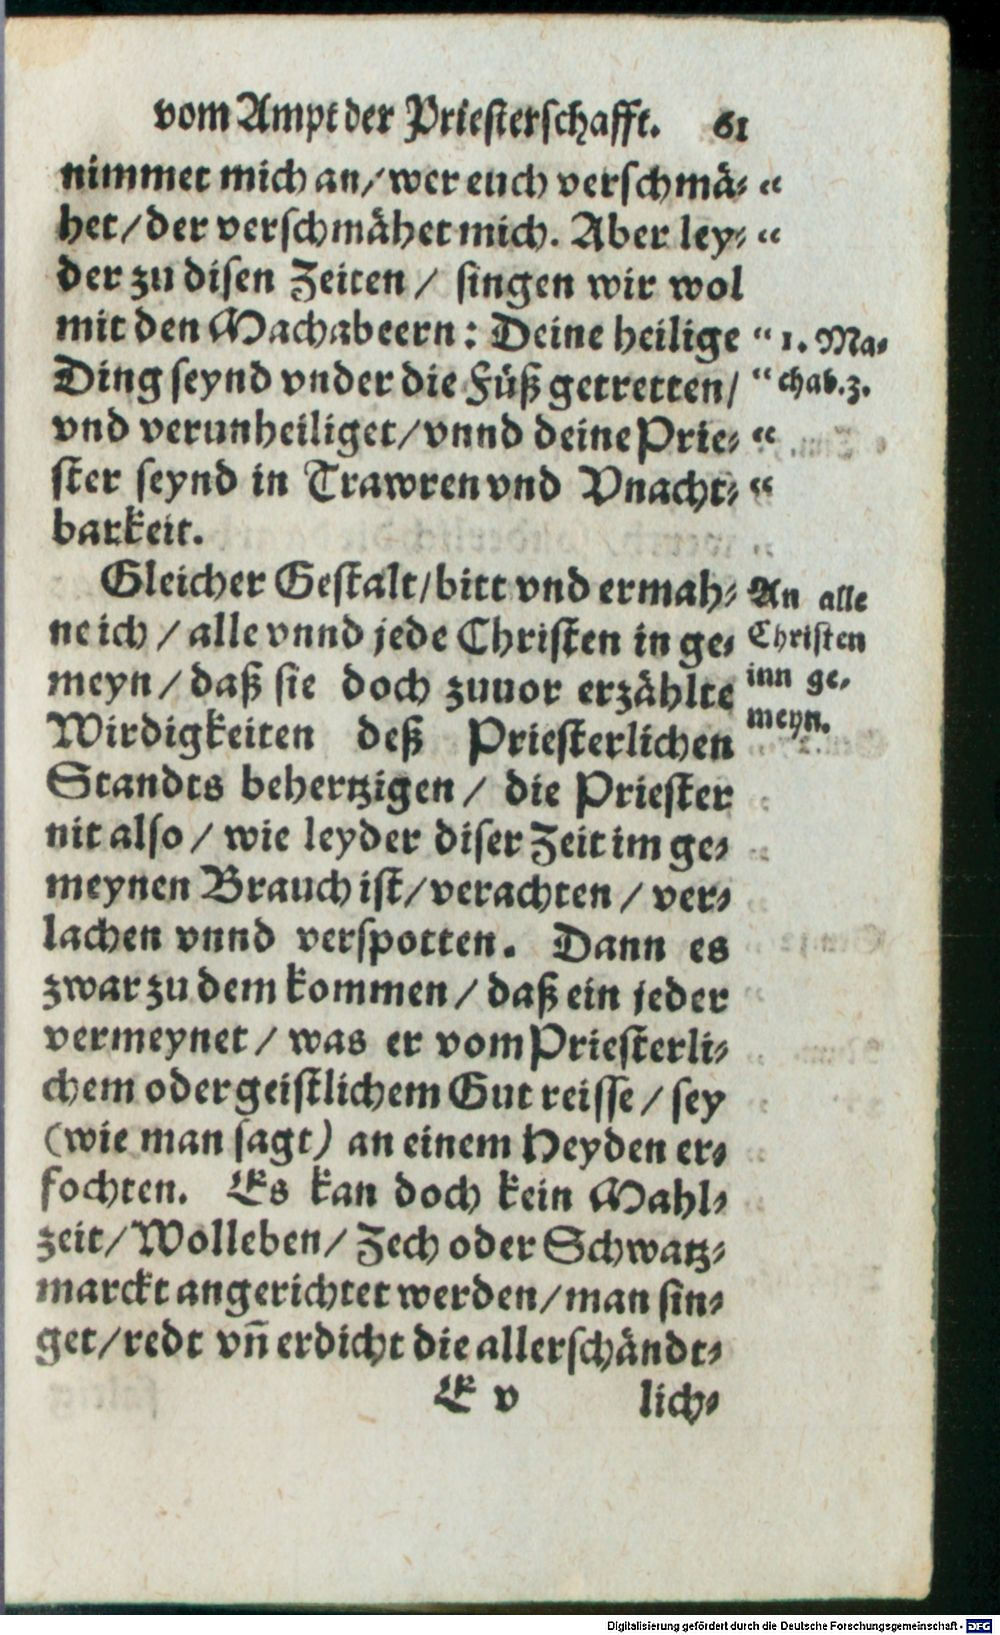 vom Ampt der Priesterschafft. 61
nimmet mich an/ wer euch verschmä- “
het/ der verschmähet mich. Aber ley- “
der zu disen Zeiten/ singen wir wol
mit den Machabeern: Deine heilige “ 1. Ma-
Ding seynd vnder die Füß getretten/ “ chab.3.
vnd verunheiliget/ vnnd deine Prie- “
ster seynd in Trawren vnd Vnacht- “
barkeit.
Gleicher Gestalt/ bitt vnd ermah-
ne ich/ alle vnnd jede Christen in ge-
meyn/ daß sie doch zuuor erzählte
Wirdigkeiten deß Priesterlichen
Standts behertzigen/ die Priester
nit also/ wie leyder diser Zeit im ge-
meynen Brauch ist/ verachten/ ver-
lachen vnnd verspotten. Dann es
zwar zu dem kommen/ daß ein jeder
vermeynet/ was er vom Priesterli-
chem oder geistlichem Gut reisse/ sey
(wie man sagt) an einem Heyden er-
fochten. Es kan doch kein Mahl-
zeit/ Wolleben/ Zech oder Schwatz-
marckt angerichtet werden/ man sin-
get/ redt vñ erdicht die allerschändt-
E v lich-
An alle
Christen
inn ge-
meyn.
Digitalisierung gefördert durch die Deutsche Forschungsgemeinschaft - DFG